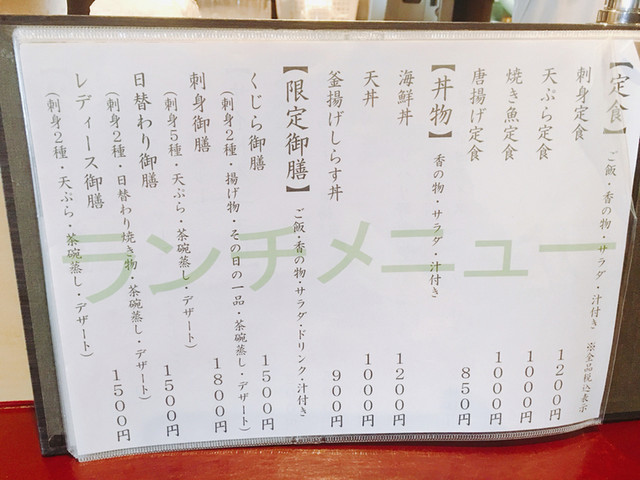 【定食】 ご飯・香の物・サラダ・汁付き ※全品税込表示
刺身定食 1200円
天ぷら定食 1000円
焼き魚定食 1000円
唐揚げ定食 850円
【丼物】 香の物・サラダ・汁付き
海鮮丼 1200円
天丼 1000円
釜揚げしらす丼 900円
【限定御膳】 ご飯・香の物・サラダ・ドリンク・汁付き
くじら御膳 1500円
(刺身2種・揚げ物・その日の一品・茶碗蒸し・デザート)
刺身御膳 1800円
(刺身5種・天ぷら・茶碗蒸し・デザート)
日替わり御膳 1500円
(刺身2種・日替わり焼き物・茶碗蒸し・デザート)
レディース御膳 1500円
(刺身2種・天ぷら・茶碗蒸し・デザート)
ランチメニュー